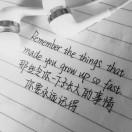 Remember the things that
made you grow up so fast
那些令你一下子长大的事情
你要永远记得